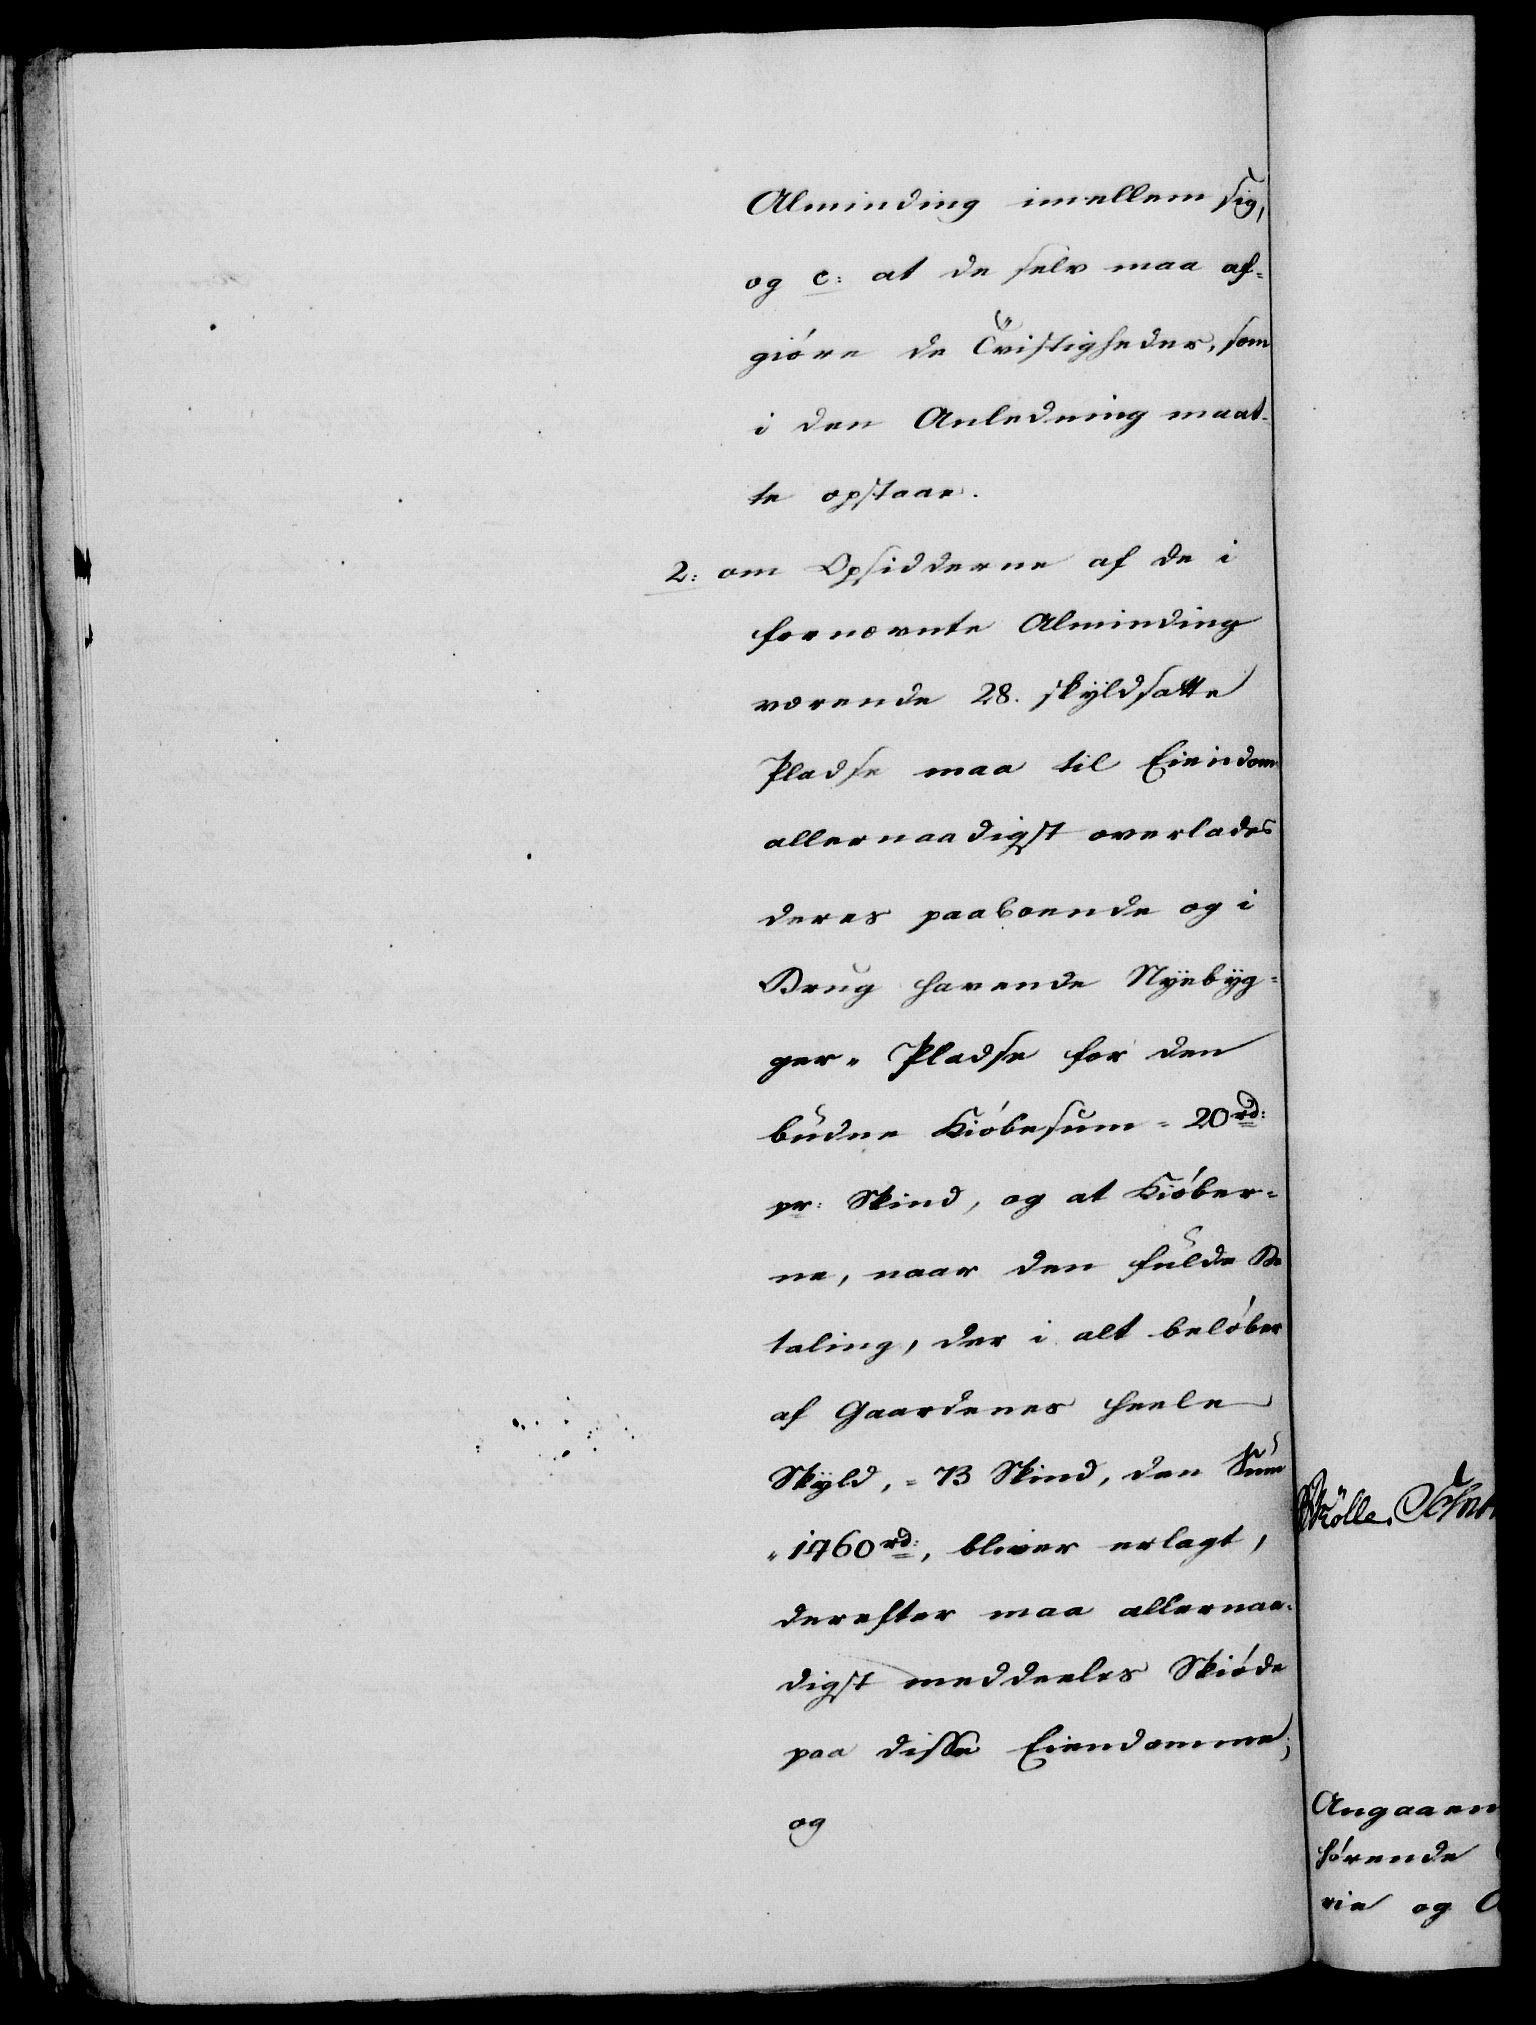 Alminding imellem sig,
og c: at de selv maa af-
giöre de Tvistigheder, som
i den Anledning maat-
te opstaae.
2: om Opsidderne af de i
fornævnte Alminding
værende 28. skyldsatte
Pladse maa til Eiendom
allernaadigst overlades
deres paaboende og i
Brug havende Nyebyg-
ger- Pladse for den
budne Kiöbesum = 20 rd:
pr: Skind, og at Kiöber-
ne, naar den fulde Be
taling, der i alt belöber
af Gaardenes heele
Skyld, = 73 Skind, den Sum
1460 rd:, bliver erlagt,
derefter maa allernaa-
digst meddeeles Skiöde
paa disse Eiendomme;
og
Angaaen
hörende
rie og